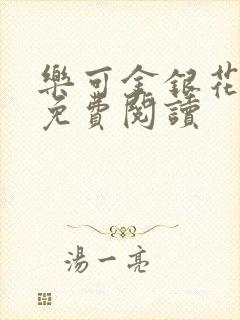 樂可金銀花
免費閱讀
湯一亮